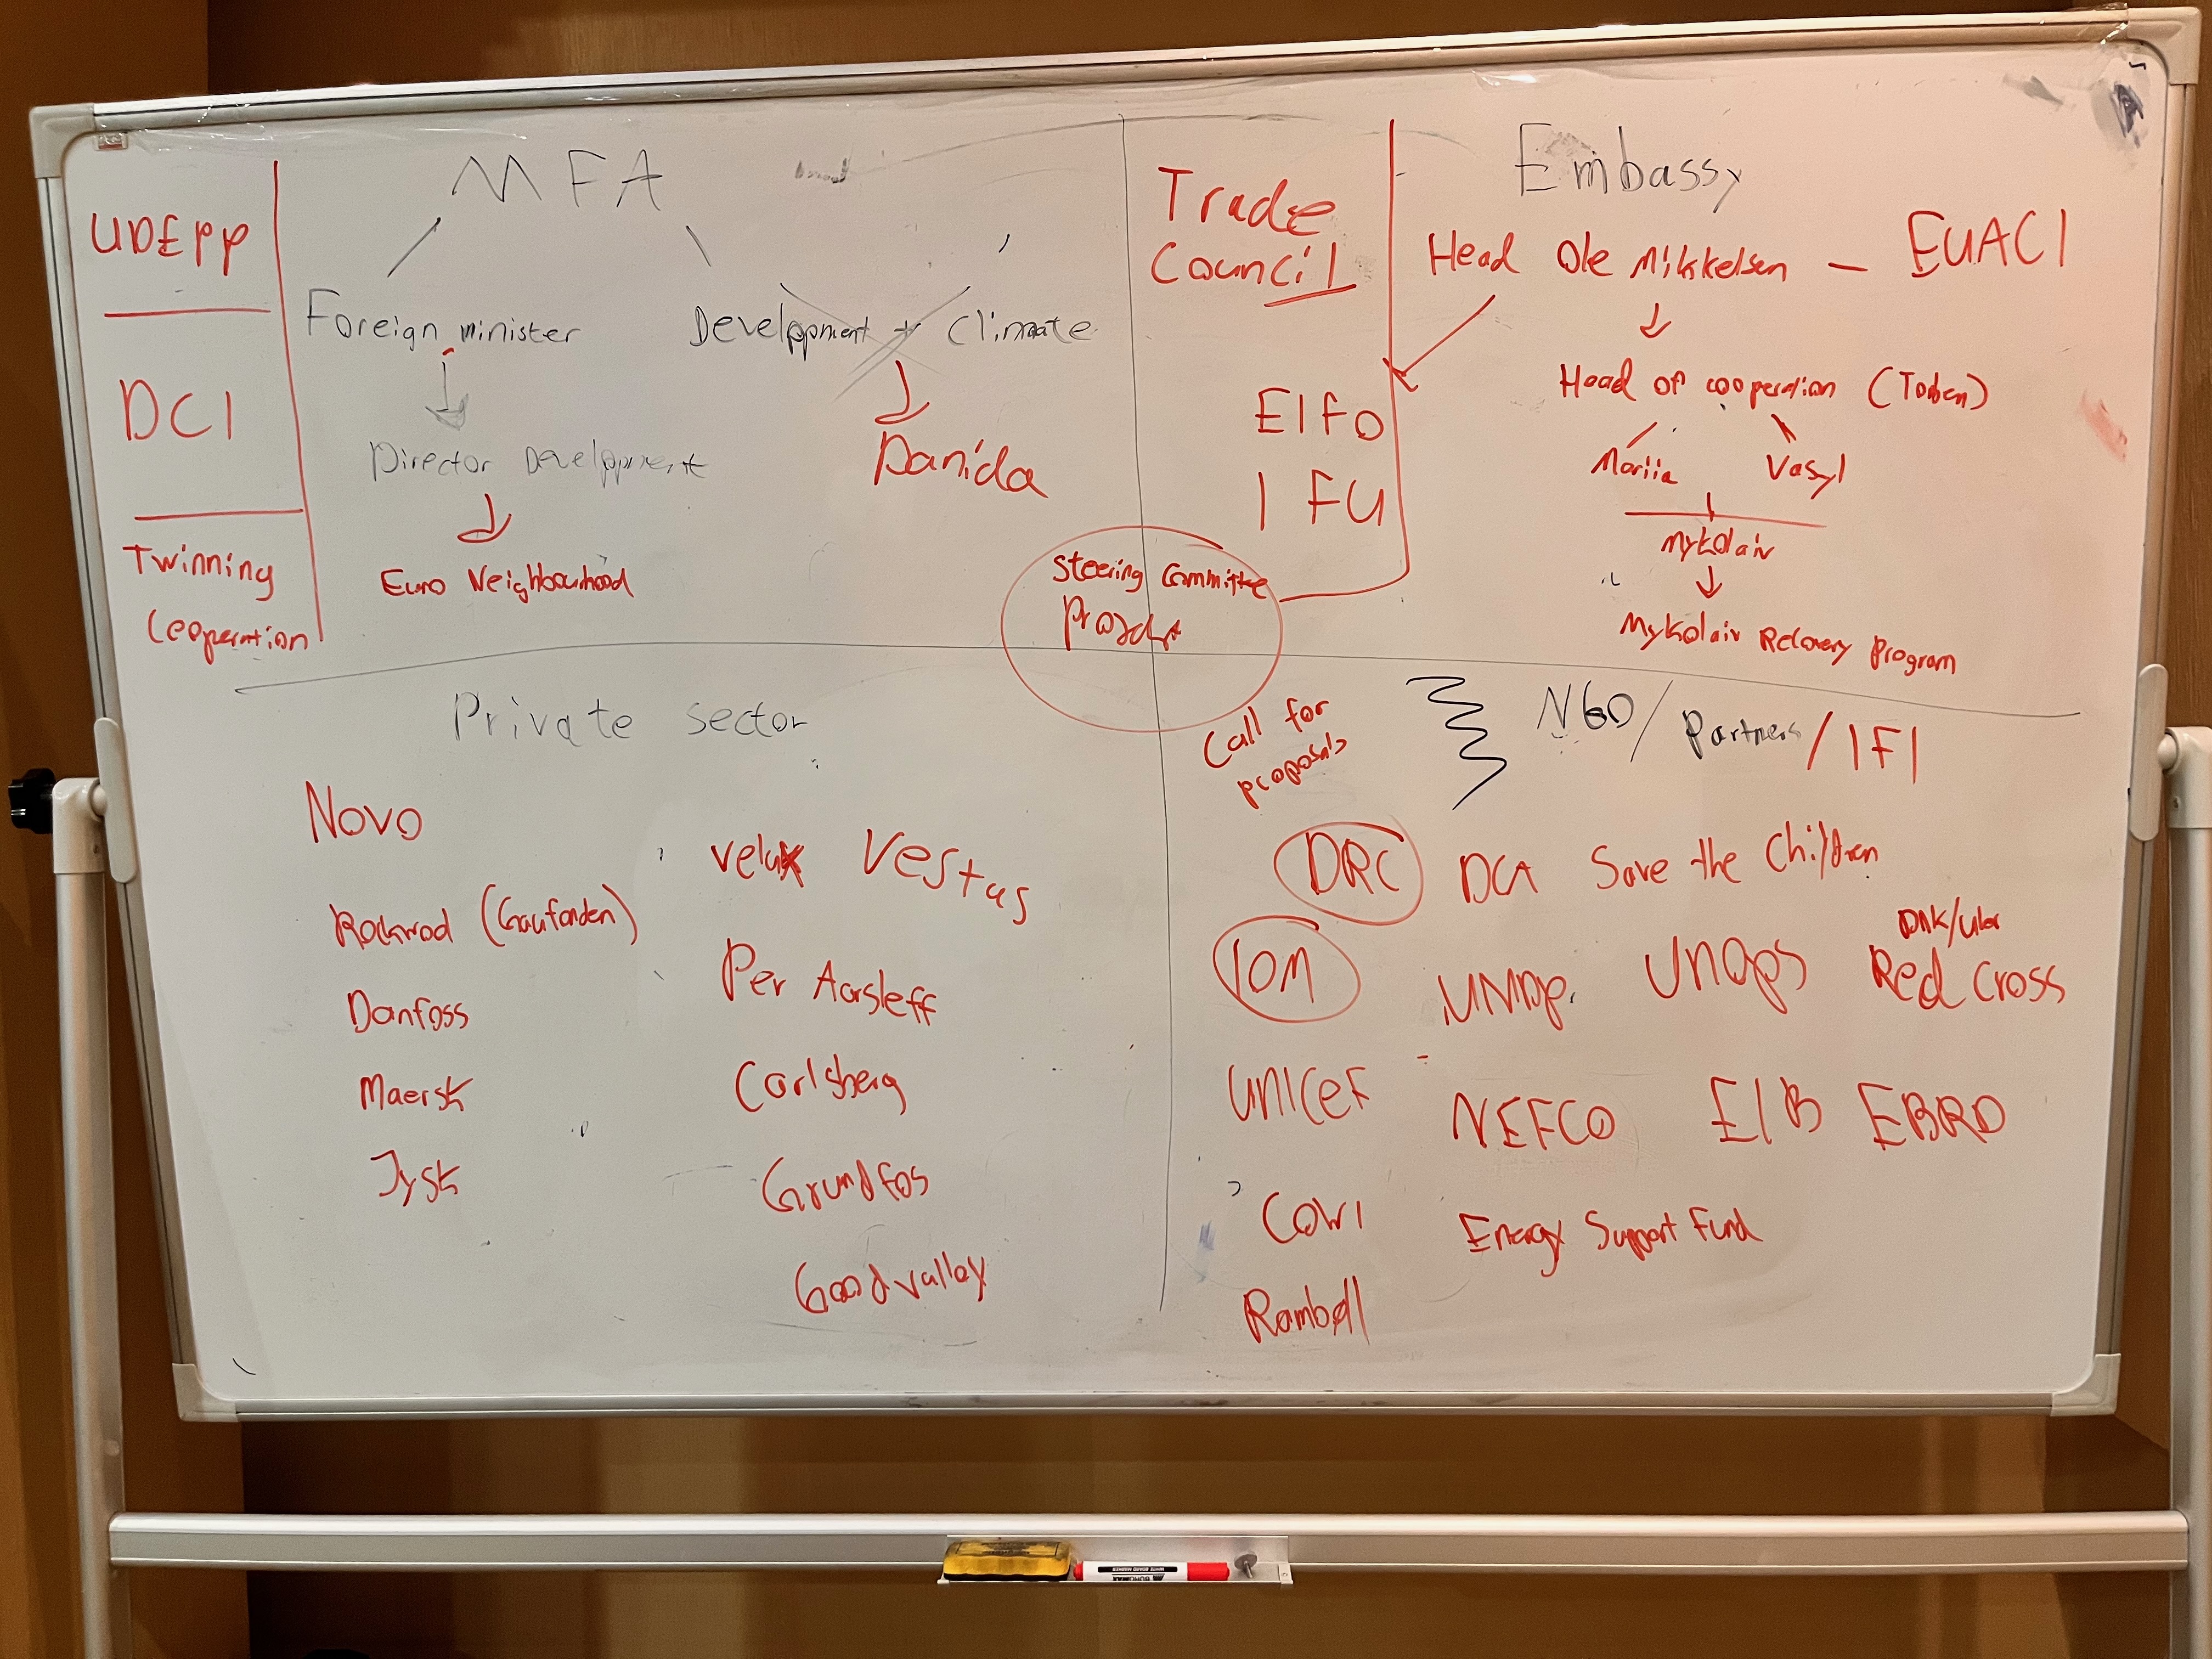 MFA
UDEPP
DCI
Twinning
Cooperation
Foreign minister
Development + Climate
Director Development
Danida
Euro Neighbourhood
Trade
Council
EIFO
IFU
Steering Committee
Embassy
Head Ole Mikkelsen — EUACI
Head of cooperation (Torben)
Mariia Vasyl
Mykolaiv
Mykolaiv Recovery Program
Private sector
Novo
Velux Vestas
Danfoss
Per Aarsleff
Maersk
Carlsberg
Jysk
Grundfos
Goodvalley
Call for
proposals
NGO / Partners / IFI
DRC DCA Save the Children
IOM UNDP UNOPS Red Cross
UNICEF NEFCO EIB EBRD
COWI Energy Support Fund
Ramboll